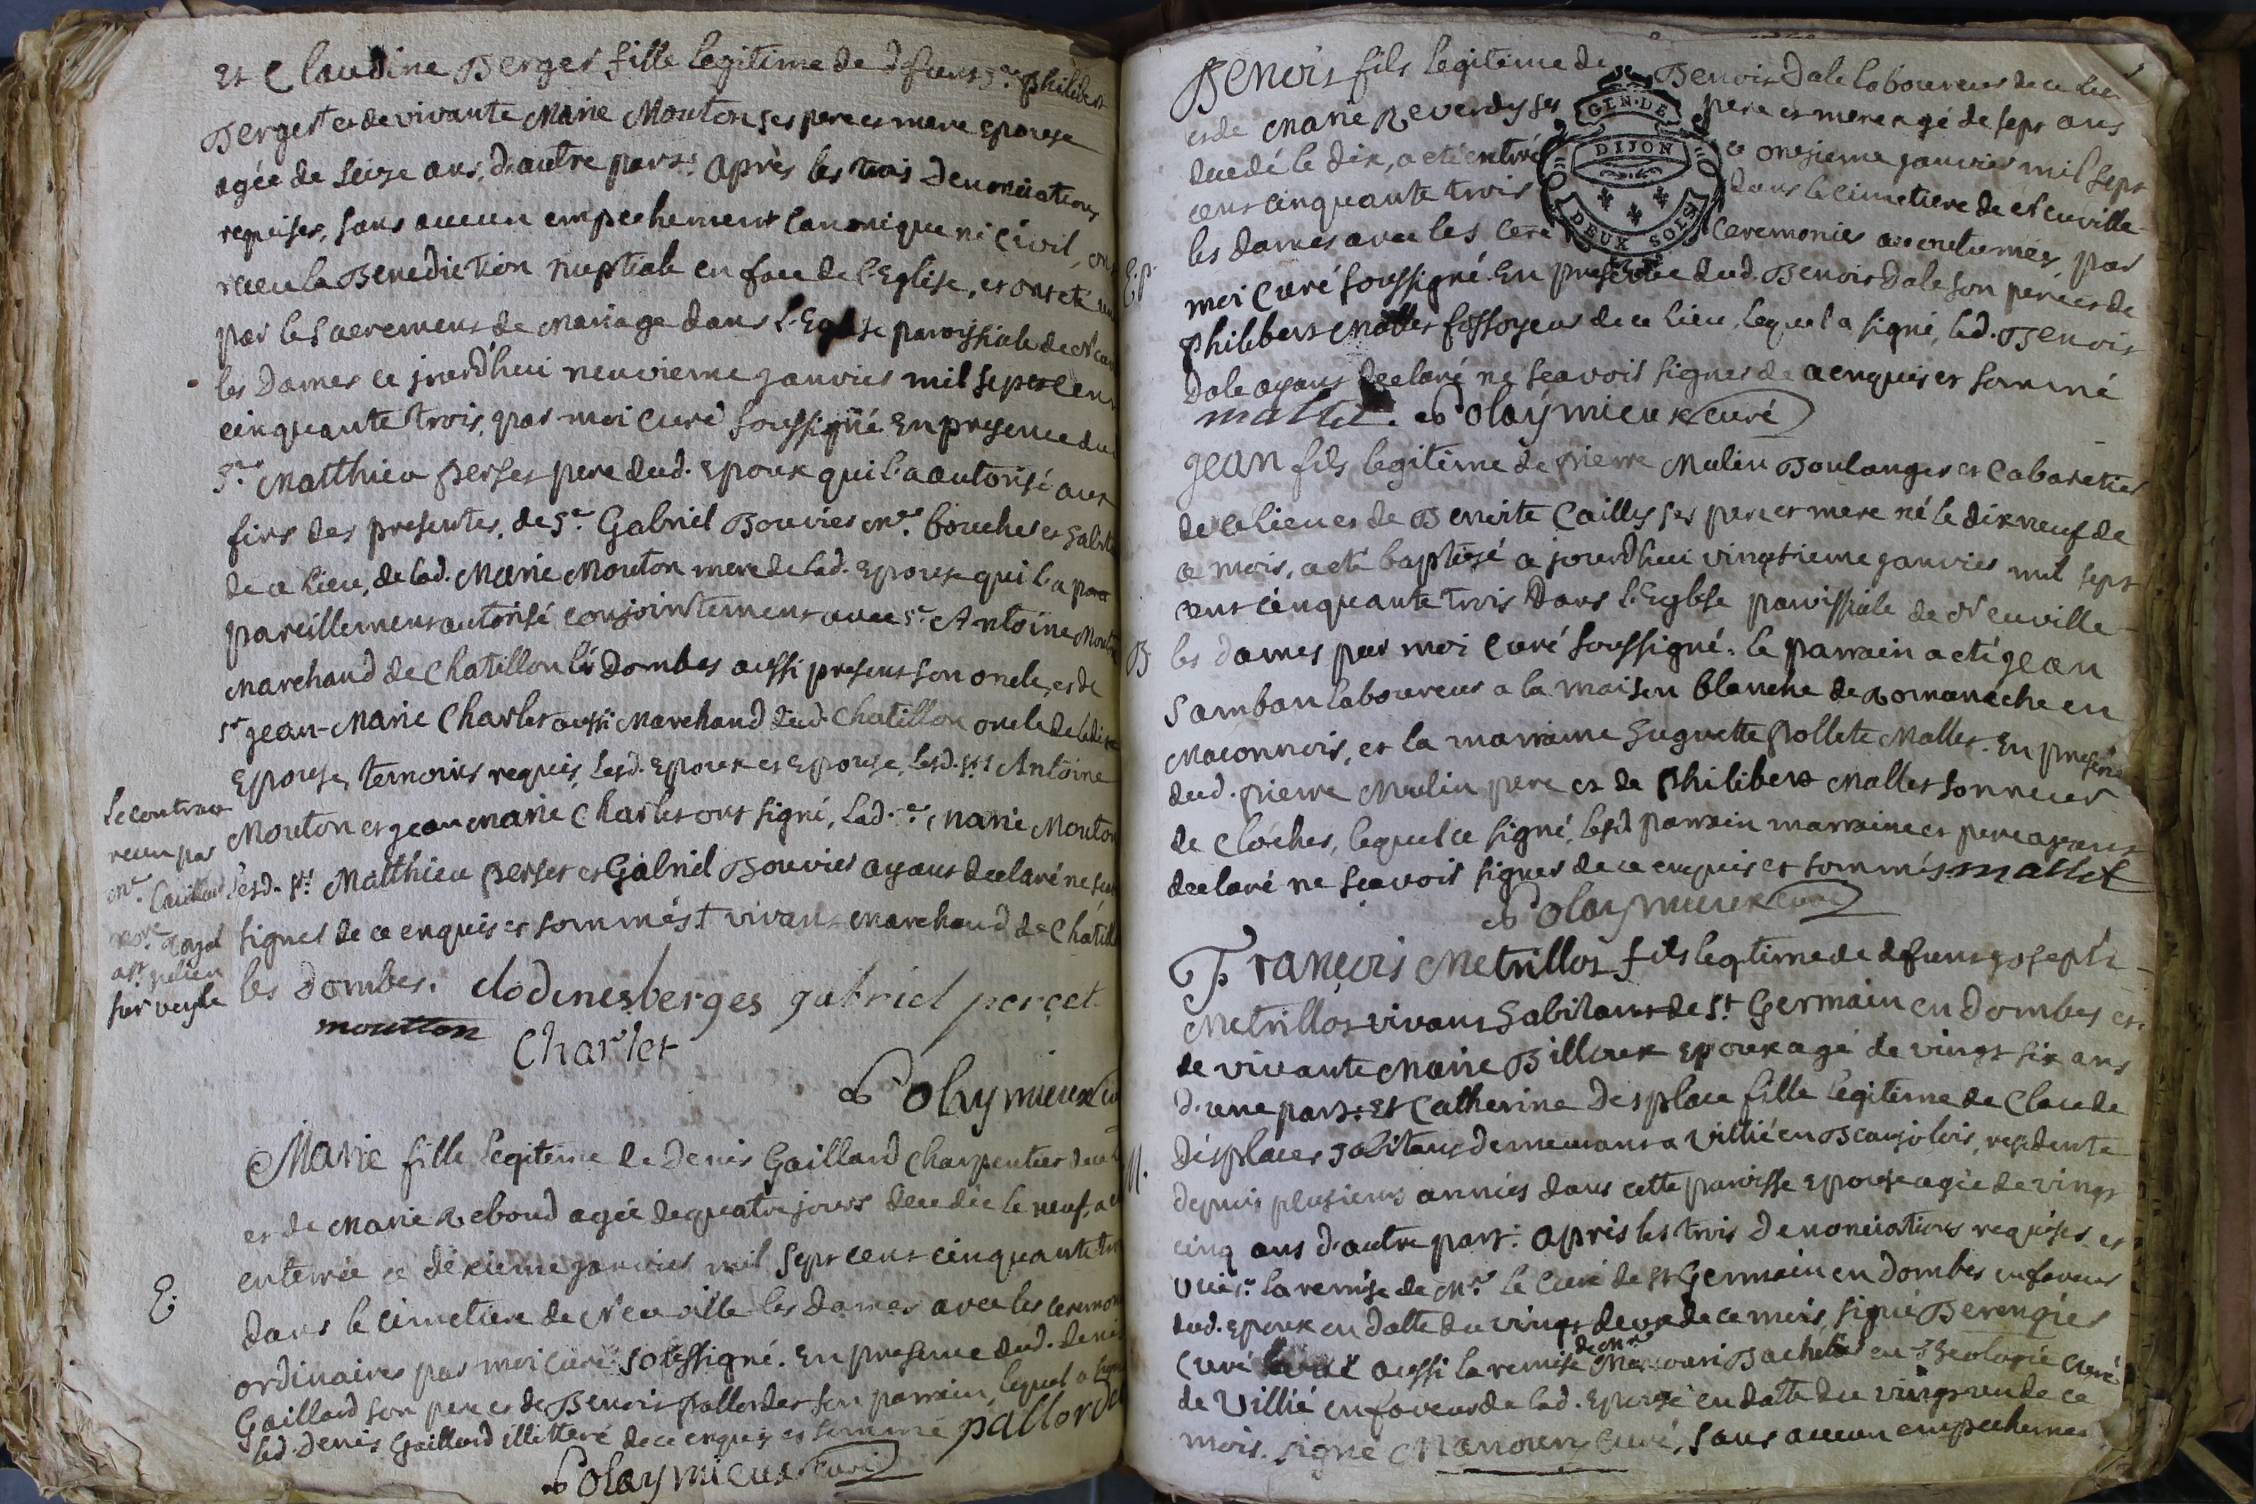 Et Claudine Berger fille legitime de defunt Sr. Philibert
Berger† et de vivante Marie Mouton ses pere et mere Epouse
agée de seize ans, d'autre part: Après les trois denonciations
requises, sans aucun empechement canonique ni civil, ont
receu la Benediction nuptiale en face de l'Eglise, et ont eté
par le Sacrement de Mariage dans l'Eglise paroissiale de
les Dames ce jourd'hui neuvieme janvier mil sept cent
cinquante trois, par moi Curé soussigné. En presence du
Sr. Matthieu Perset pere dud. Epoux qui l'a autorisé aux
fins des presentes, de Sr. Gabriel Bouvier Me. boucher et
de ce lieu, de lad. Marie Mouton mere de lad. Epouse qui l'a
pareillement autorisé conjointement avec Sr. Antoine
Marchand de Chatillon les Dombes aussi present son oncle, et de
Sr jean-Marie Charlet aussi Marchand dud. Chatillon oncle de
Epouse, temoins requis, lesd. Epoux et Epouse, lesd. Srs Antoine
Mouton et jean Marie Charlet ont signé, Lad. Marie Mouton
lesd. Srs Matthieu Perset et Gabriel Bouvier ayant declaré ne
signer de ce enquis et sommés † vivant Marchand de
les Dombes. clodinesberges gabriel perçet
moutton
Charlet
Polaymieux
Le contract
receu par
Me.
Royal
a St. julien
sur veyle
Marie fille legitime de Denis Gaillard Charpentier
et de Marie Reboud agée de quatre jours decedée le neuf, a
enterrée ce dixieme janvier mil sept cent cinquante
dans le cimetiere de Neuville les Dames avec les
E.
ordinaires par moi Curé soussigné. En presence dud. Denis
Gaillard son pere et de Benoit Pallordet son parrain, lequel a
led. Denis Gaillard illitteré de ce enquis et sommé
Polaymieux curé
Benoit fils legitime de Benoit Dale laboureur de ce lieu
et de Marie Reverdy ses pere et mere agé de sept ans
decedé le dix, a eté entérré ce onzieme janvier mil sept
cent cinquante trois dans le cimetiere de Neuville
les Dames avec les cere Ceremonies accoutumées, par
moi Curé soussigné. En presence dud. Benoit Dale son pere et de
Philibert Mallet fossoyeur de ce lieu, lequel a signé, led. Benoit
Dale ayant declaré ne sçavoir signer de ce enquis et sommé
mallet. Polaymieux curé
GEN. DE
DIJON
DEUX SOLS
jean fils legitime de Pierre Mulin Boulanger et Cabaretier
de ce lieu et de Benoite Cailly ses pere et mere né le dix neuf de
ce mois, a eté baptisé a jourd'hui vingtieme janvier mil sept
cent cinquante trois dans l'Eglise paroissiale de Neuville
B
les Dames par moi Curé soussigné. le parrain a eté jean
Sambon laboureur a la maison blanche de Romaneche en
Maconnois, et la marraine huguette Pollete Mallet. En presence
dud. Pierre Mulin pere et de Philibert Mallet sonneur
de Cloches, lequel a signé, lesd parrain marraine et pere ayant
declaré ne sçavoir signer de ce enquis et sommés. mallet
Polaymieux curé
François Metrillot fils legitime de defunt joseph
Metrillot vivant habitant de St. Germain en Dombes et
de vivante Marie Billoux Epoux agé de vingt six ans
d'une part: Et Catherine Desplace fille legitime de Claude
Desplaces habitant demeurant a Villié en Beaujolois, residente
M.
depuis plusieurs années dans cette paroisse Epouse agée de vingt
cinq ans d'autre part: Après les trois denonciations requises, et
la remise de Mr. le Curé de St Germain en Dombes en faveur
dud. Epoux en datte du vingt deux de ce mois, signé Berengier
Curé aussi la remise de Mre Bachelier en Theologie Curé
de Villié en faveur de lad. Epouse en datte du vingt un de ce
mois. signé Manoury Curé, sans aucun empechement